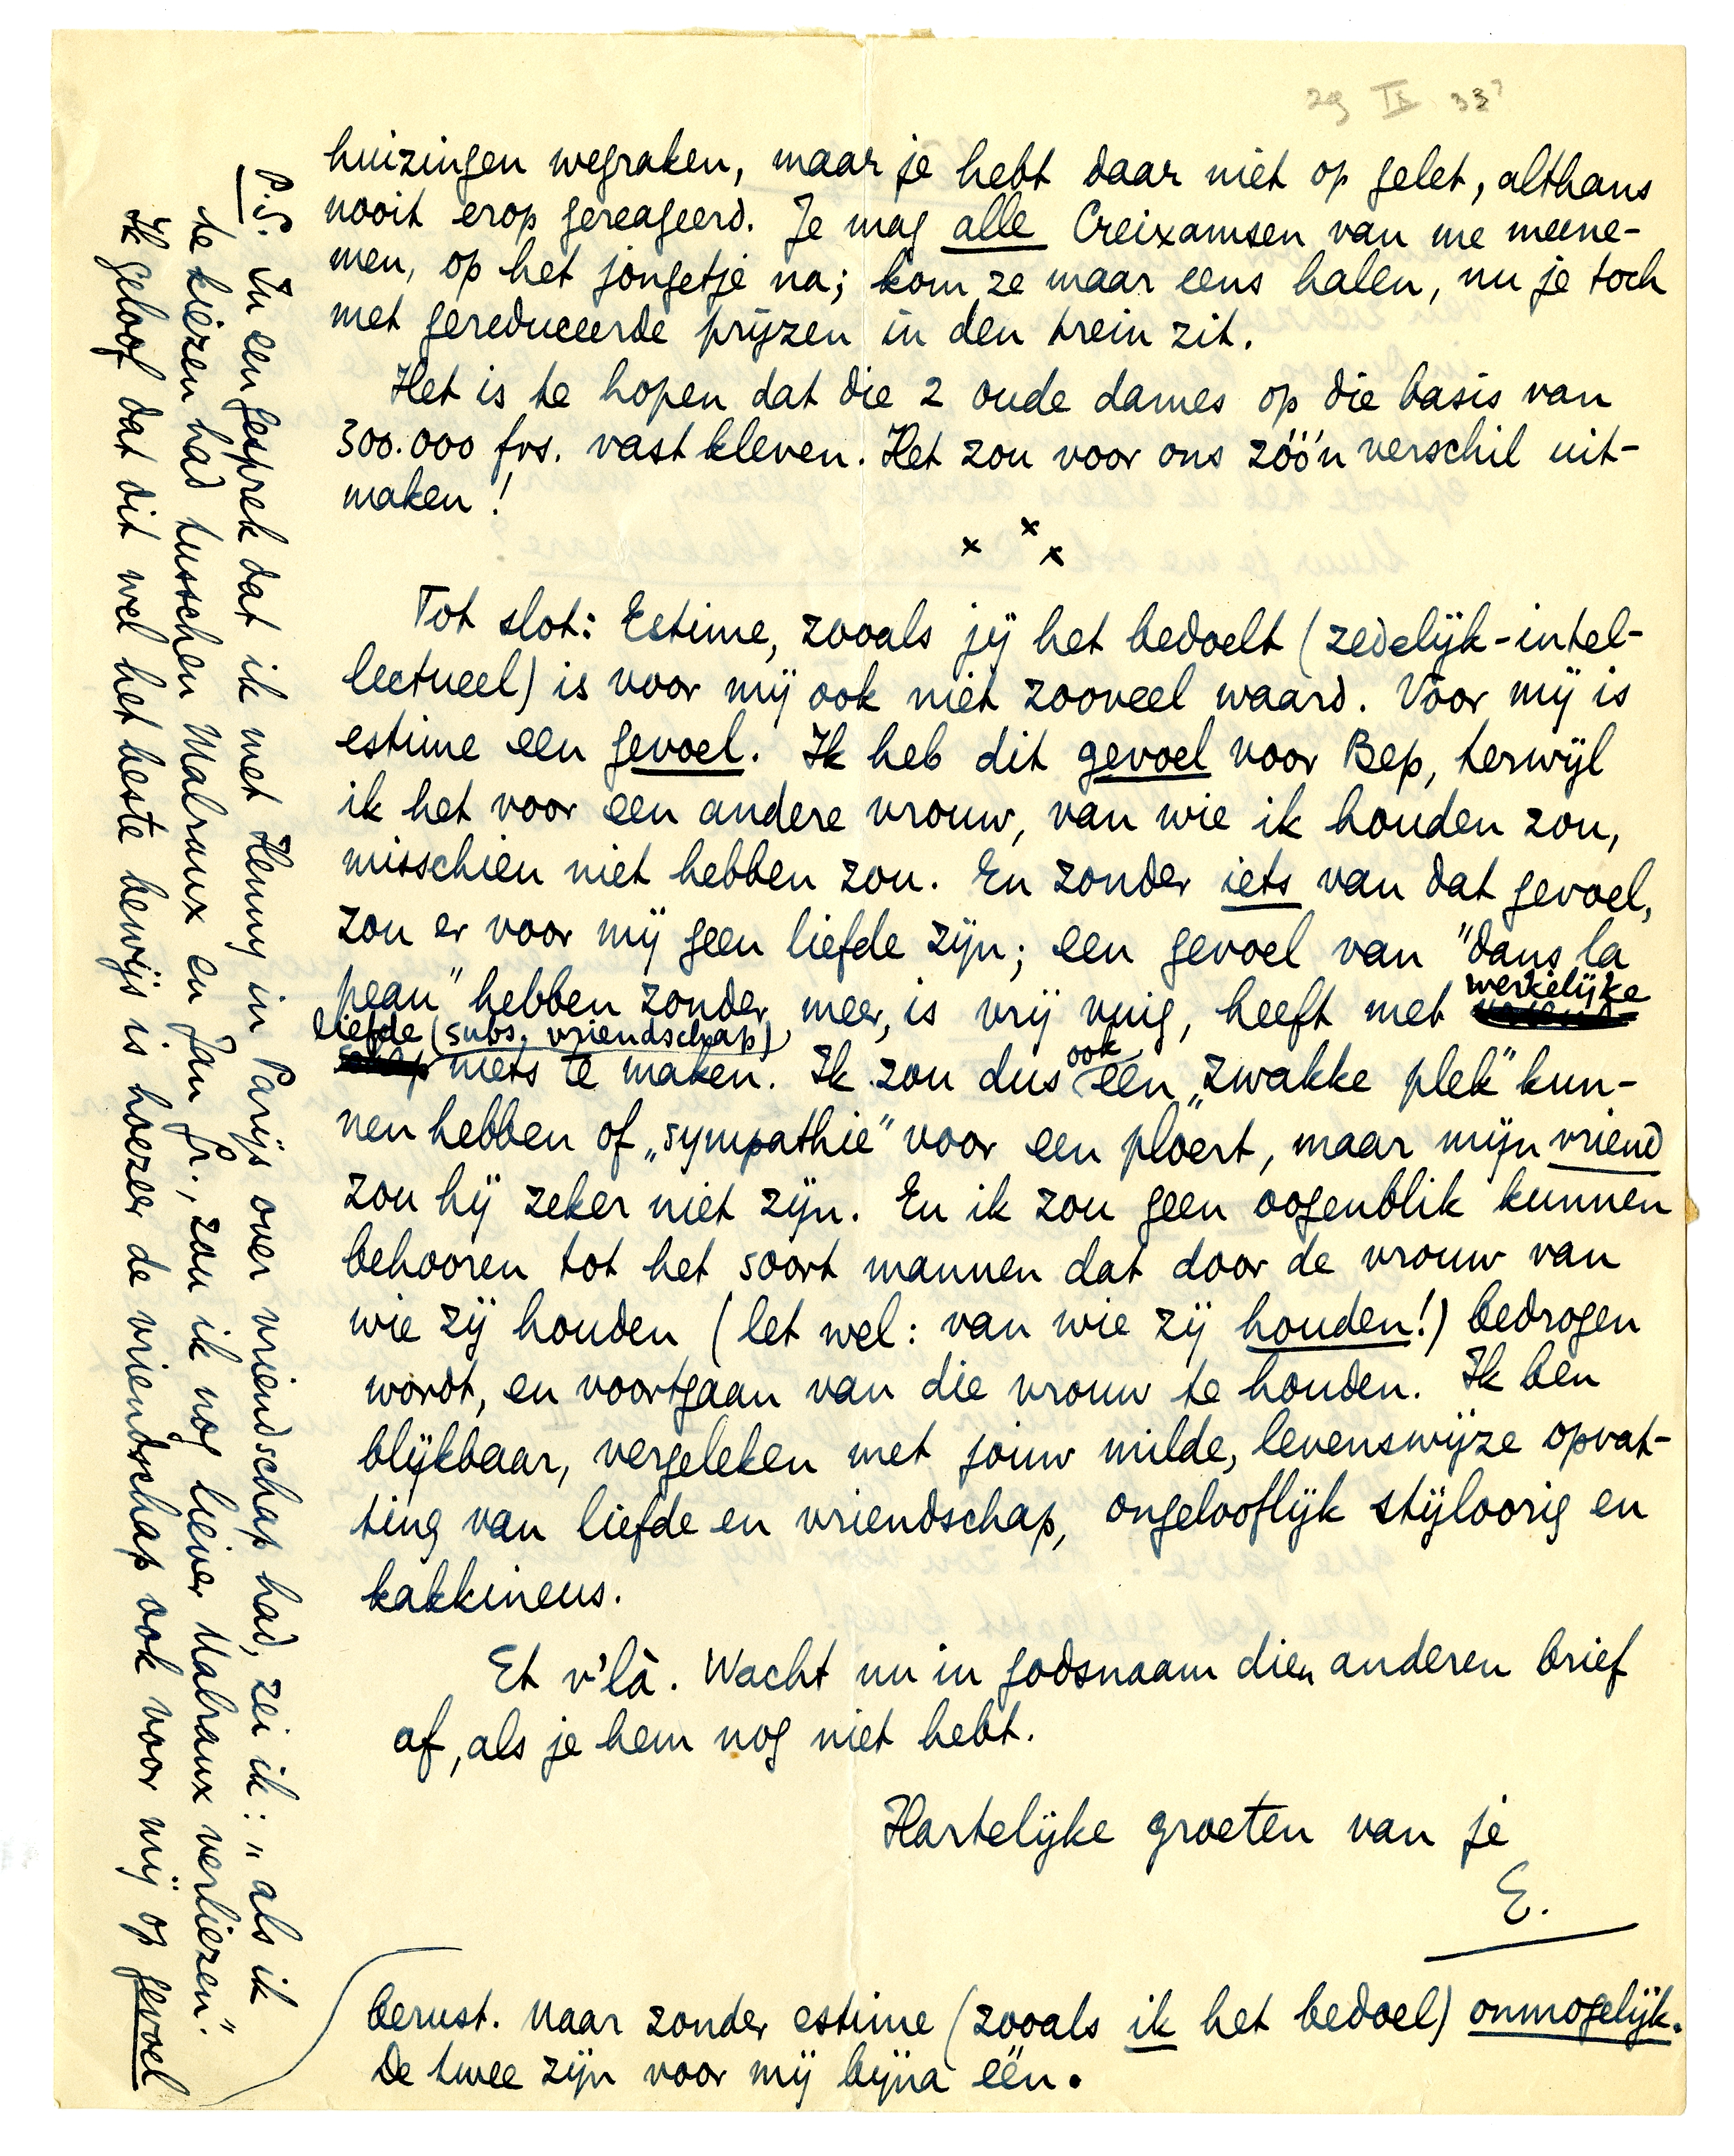 29 IX 33?
huizingen wegraken, maar je hebt daar niet op gelet, althans
nooit erop gereageerd. Je mag alle Creixamsen van me meene-
men, op het jongetje na; kom ze maar eens halen, nu je toch
met gereduceerde prijzen in den trein zit.
Het is te hopen dat die 2 oude dames op die basis van
300.000 frs. vastkleven. Het zou voor ons zóó'n verschil uit-
maken!
x x x
Tot slot: Estime, zooals jij het bedoelt (zedelijk-intel-
lectueel) is voor mij ook niet zooveel waard. Voor mij is
estime een gevoel. Ik heb dit gevoel voor Bep, terwijl
ik het voor een andere vrouw, van wie ik houden zou,
misschien niet hebben zou. En zonder iets van dat gevoel,
zou er voor mij geen liefde zijn; een gevoel van "dans la
peau" hebben zonder meer, is vrij vuig, heeft met werkelijke
liefde (subs. vriendschap) niets te maken. Ik zou dus ook een „zwakke plek" kun-
nen hebben of „sympathie" voor een ploert, maar mijn vriend
zou hij zeker niet zijn. En ik zou geen oogenblik kunnen
behooren tot het soort mannen dat door de vrouw van
wie zij houden (let wel: van wie zij houden!) bedrogen
wordt, en voortgaan van die vrouw te houden. Ik ben
blijkbaar, vergeleken met jouw milde, levenswijze opvat-
ting van liefde en vriendschap, ongelooflijk stijloorig en
kakkineus.
Et v'là. Wacht nu in godsnaam dien anderen brief
af, als je hem nog niet hebt.
Hartelijke groeten van je
E.
P.S. In een gesprek dat ik met Henny in Parijs over vriendschap had, zei ik: „als ik
te kiezen had tusschen Malraux en Jan Gr., zou ik nog liever Malraux verliezen."
Ik geloof dat dit wel het beste bewijs is hoezeer de vriendschap ook voor mij op gevoel
berust. Maar zonder estime (zooals ik het bedoel) onmogelijk.
De twee zijn voor mij bijna één.